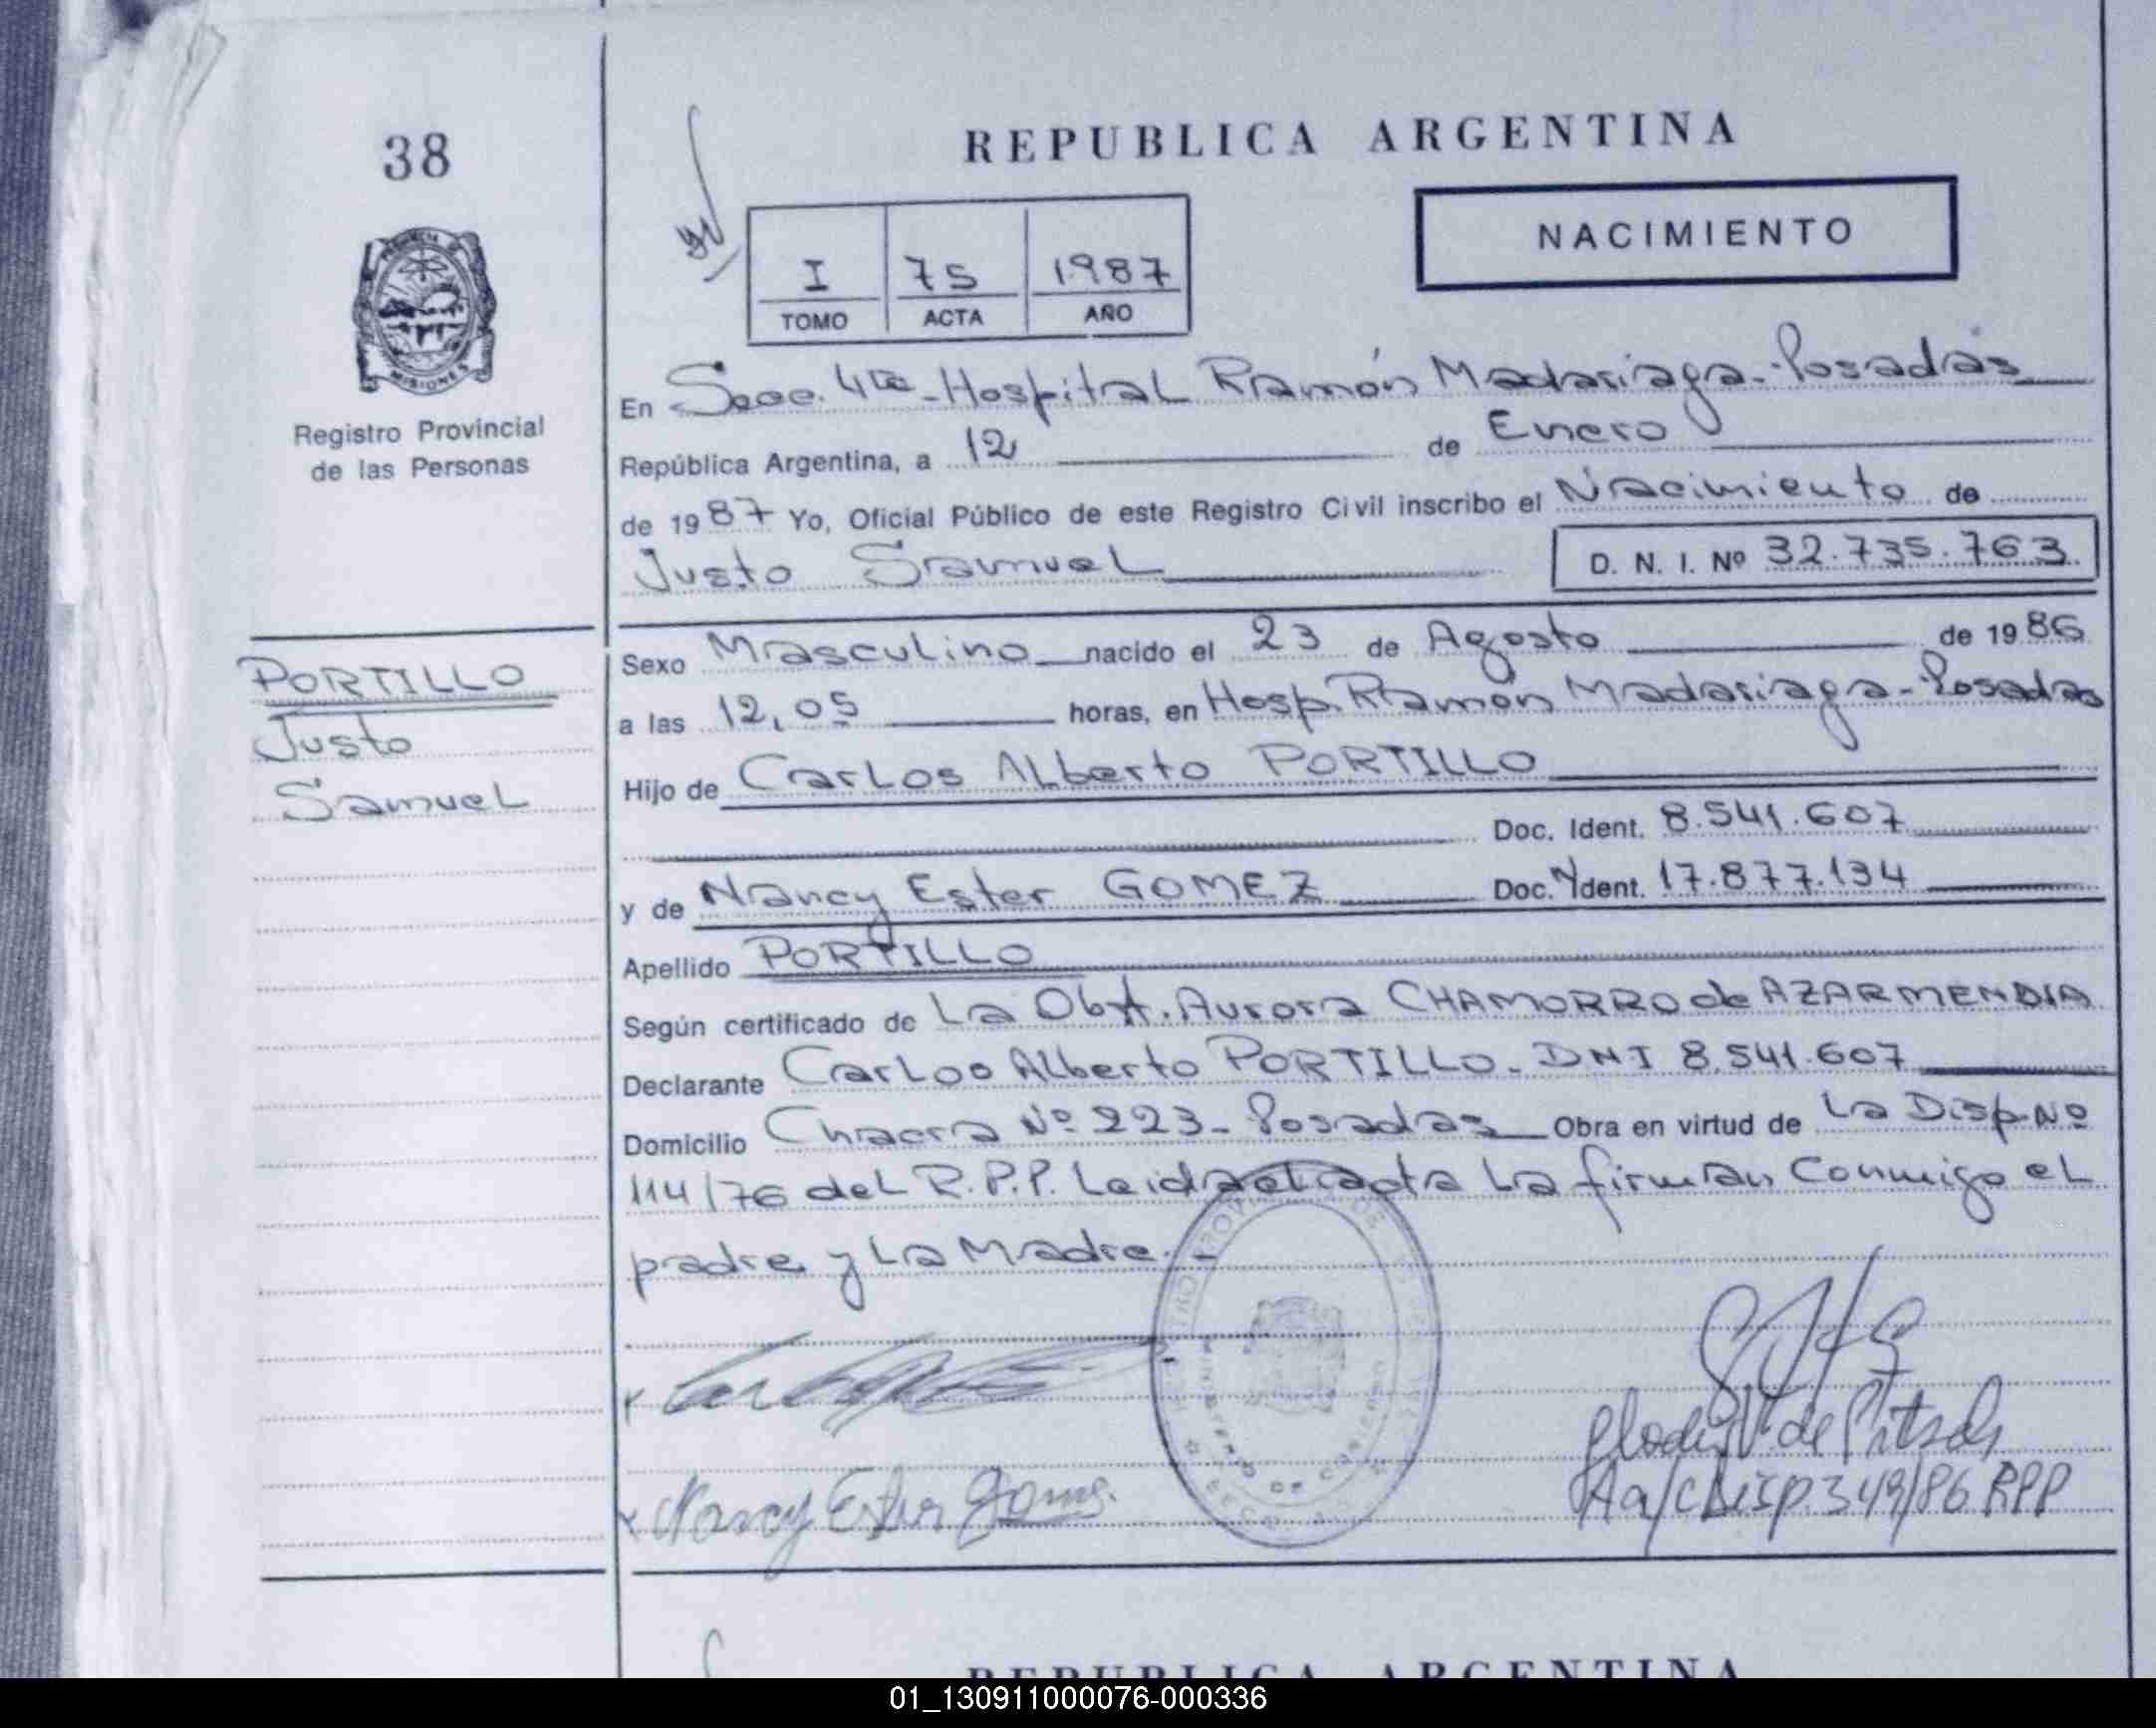 38
REPUBLICA ARGENTINA
NACIMIENTO
I 75 1987
TOMO ACTA AÑO
MISIONES
Registro Provincial
de las Personas
En Secc. 4ta - Hospital Ramón Madariaga - Posadas
República Argentina, a 12 de Enero
de 1987 Yo, Oficial Público de este Registro Civil inscribo el Nacimiento de
Justo Samuel D. N. I. Nº 32.735.763
PORTILLO
Justo
Samuel
Sexo Masculino nacido el 23 de Agosto de 1986
a las 12,05 horas, en Hosp. Ramón Madariaga - Posadas
Hijo de Carlos Alberto PORTILLO
Doc. Ident. 8.541.607
y de Nancy Ester GOMEZ Doc. Ident. 17.877.134
Apellido PORTILLO
Según certificado de La Obst. Aurora CHAMORRO de AZARMENDIA
Declarante Carlos Alberto PORTILLO - DNI 8.541.607
Domicilio Chacra Nº 223 - Posadas Obra en virtud de La Disp. Nº
114/76 del R.P.P. Leida el acta La firman Conmigo el
padre y La Madre.-
Nancy Ester Gomez
de
A a/c Disp. 349/86 RPP
REPUBLICA ARGENTINA
01_130911000076-000336